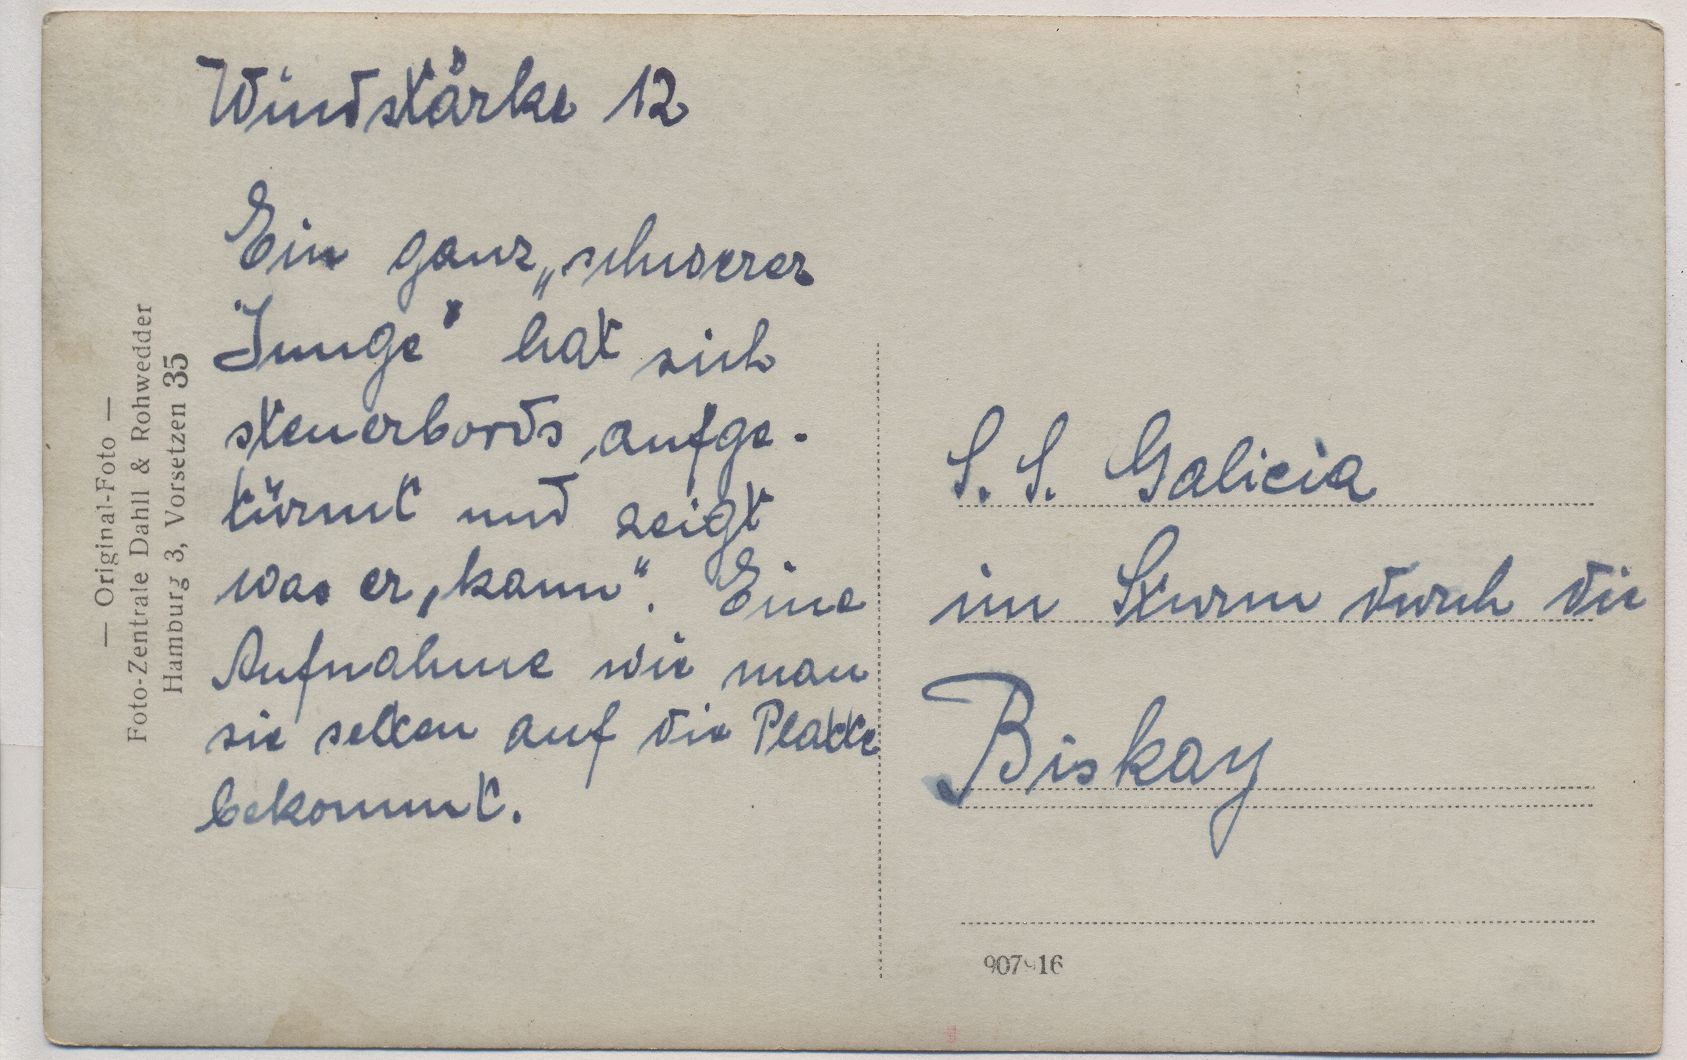 Windstärke 12
Ein ganz „schwerer
Junge" hat sich
steuerbords aufge-
türmt und zeigt
was er „kann". Eine
Aufnahme wie man
sie selten auf die Platte
bekommt.
— Original-Foto —
Foto-Zentrale Dahll & Rohwedder
Hamburg 3, Vorsetzen 35
S. S. Galicia
im Sturm durch die
Biskay
907 16